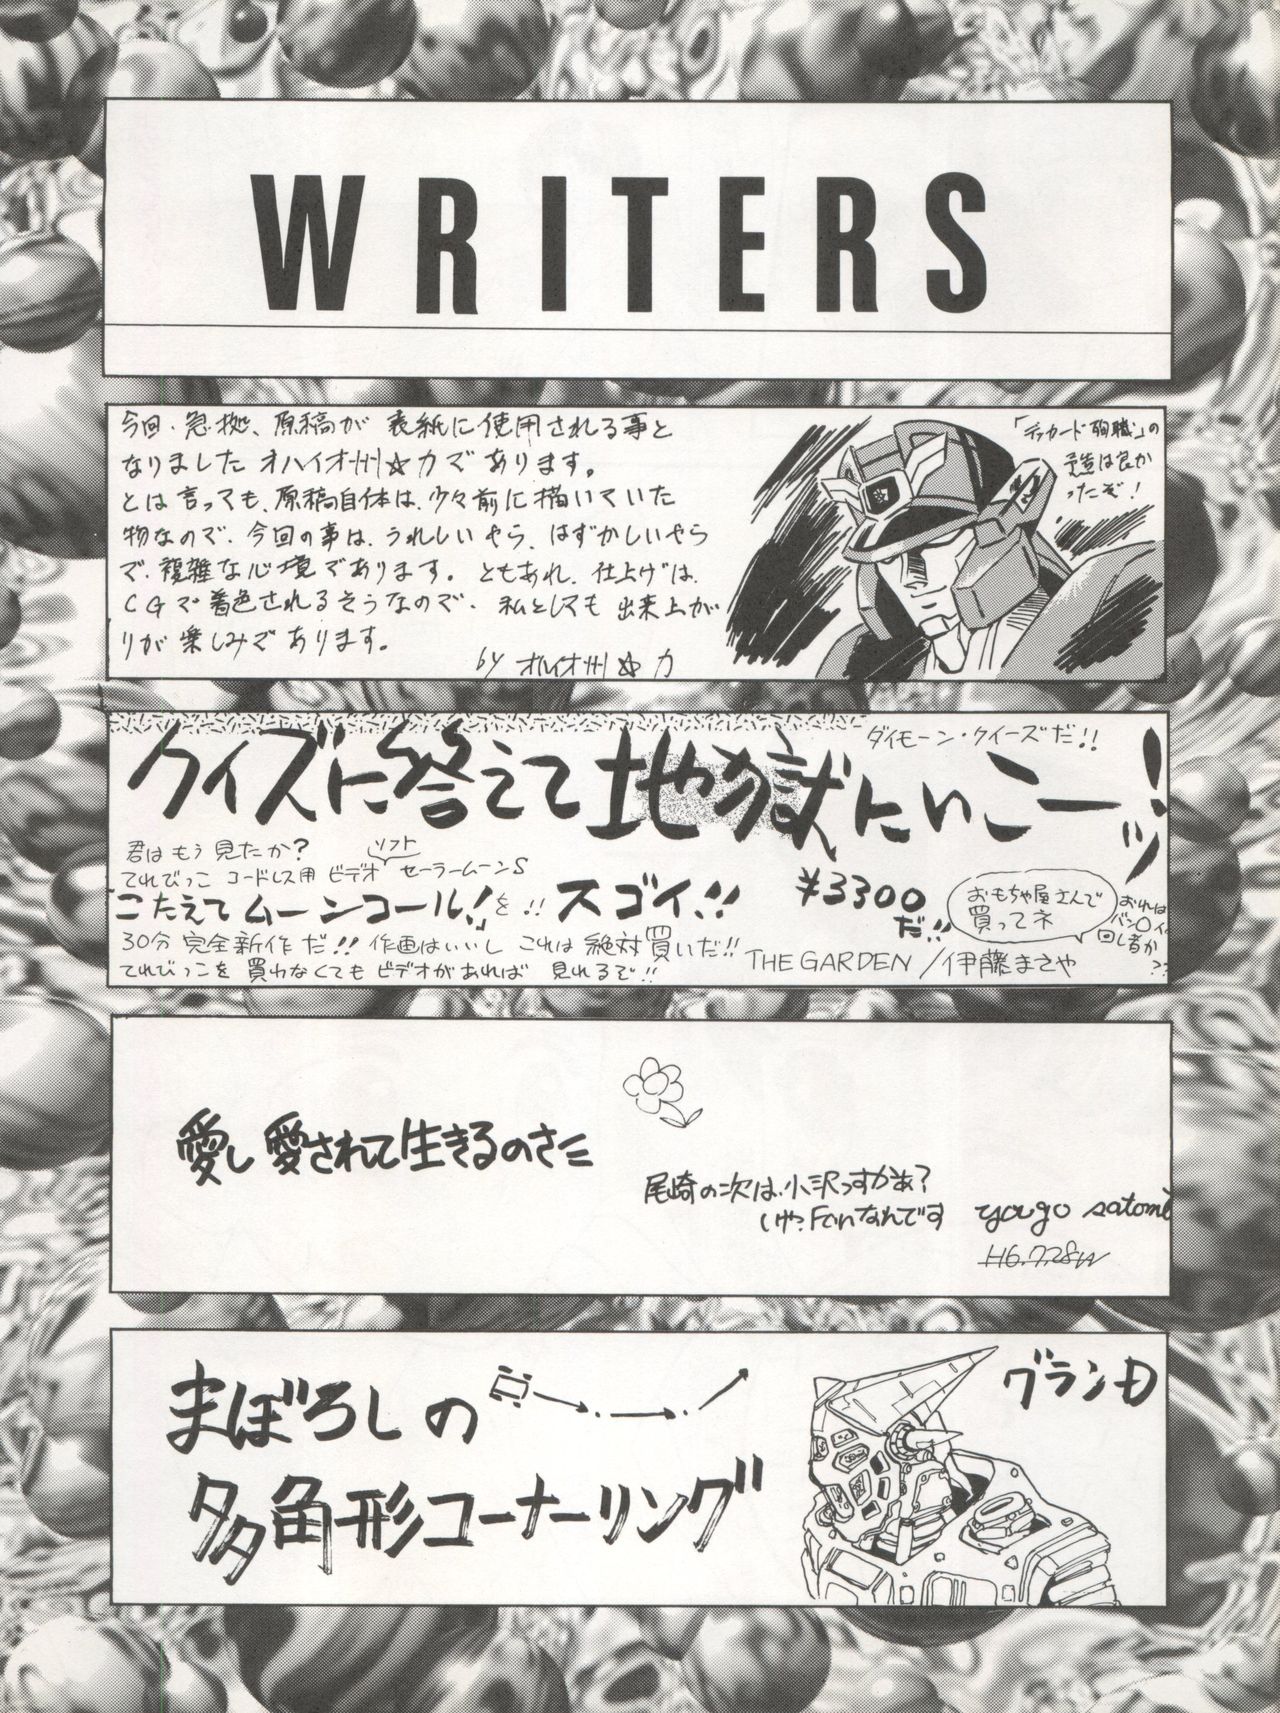 WRITERS
今回、急拠、原稿が表紙に使用される事と
なりましたオハイオ州☆力であります。
とは言っても、原稿自体は、少々前に描いていた
物なので、今回の事は、うれしいやら、はずかしいやら
で、複雑な心境であります。ともあれ、仕上げは、
CGで着色されるそうなので、私としても出来上が
りが楽しみであります。
by オハイオ州☆力
「デッカード殉職」の
予告は良か
ったぞ!
ダイモーン・クイーズだ!!
クイズに答えて地獄にいこーッ!
君はもう見たか?
てれびっこ コードレス用 ビデオソフト セーラームーンS
こたえてムーンコール!を!! スゴイ!!
¥3300
だ!!
30分 完全新作だ!! 作画はいいし これは 絶対買いだ!!
てれびっこを 買わなくても ビデオがあれば 見れるぞ!!
おもちゃ屋さんで
買ってネ
おれは
バン〇イ
回し者か
??
THE GARDEN/伊藤まさや
愛し愛されて生きるのさ
尾崎の次は、小沢っすかぁ?
なんです
yougo satomi
H6.7.28
まぼろしの
多角形コーナーリング
グランD